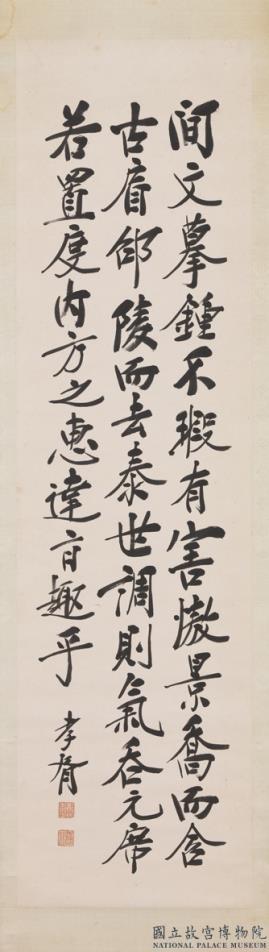 间文摹鍾不瑕有害憿景喬而含
古眉邰陵而去泰世調則氣吞元席
若置度内方之惠達官趣乎
孝胥
國立故宮博物院
NATIONAL PALACE MUSEUM